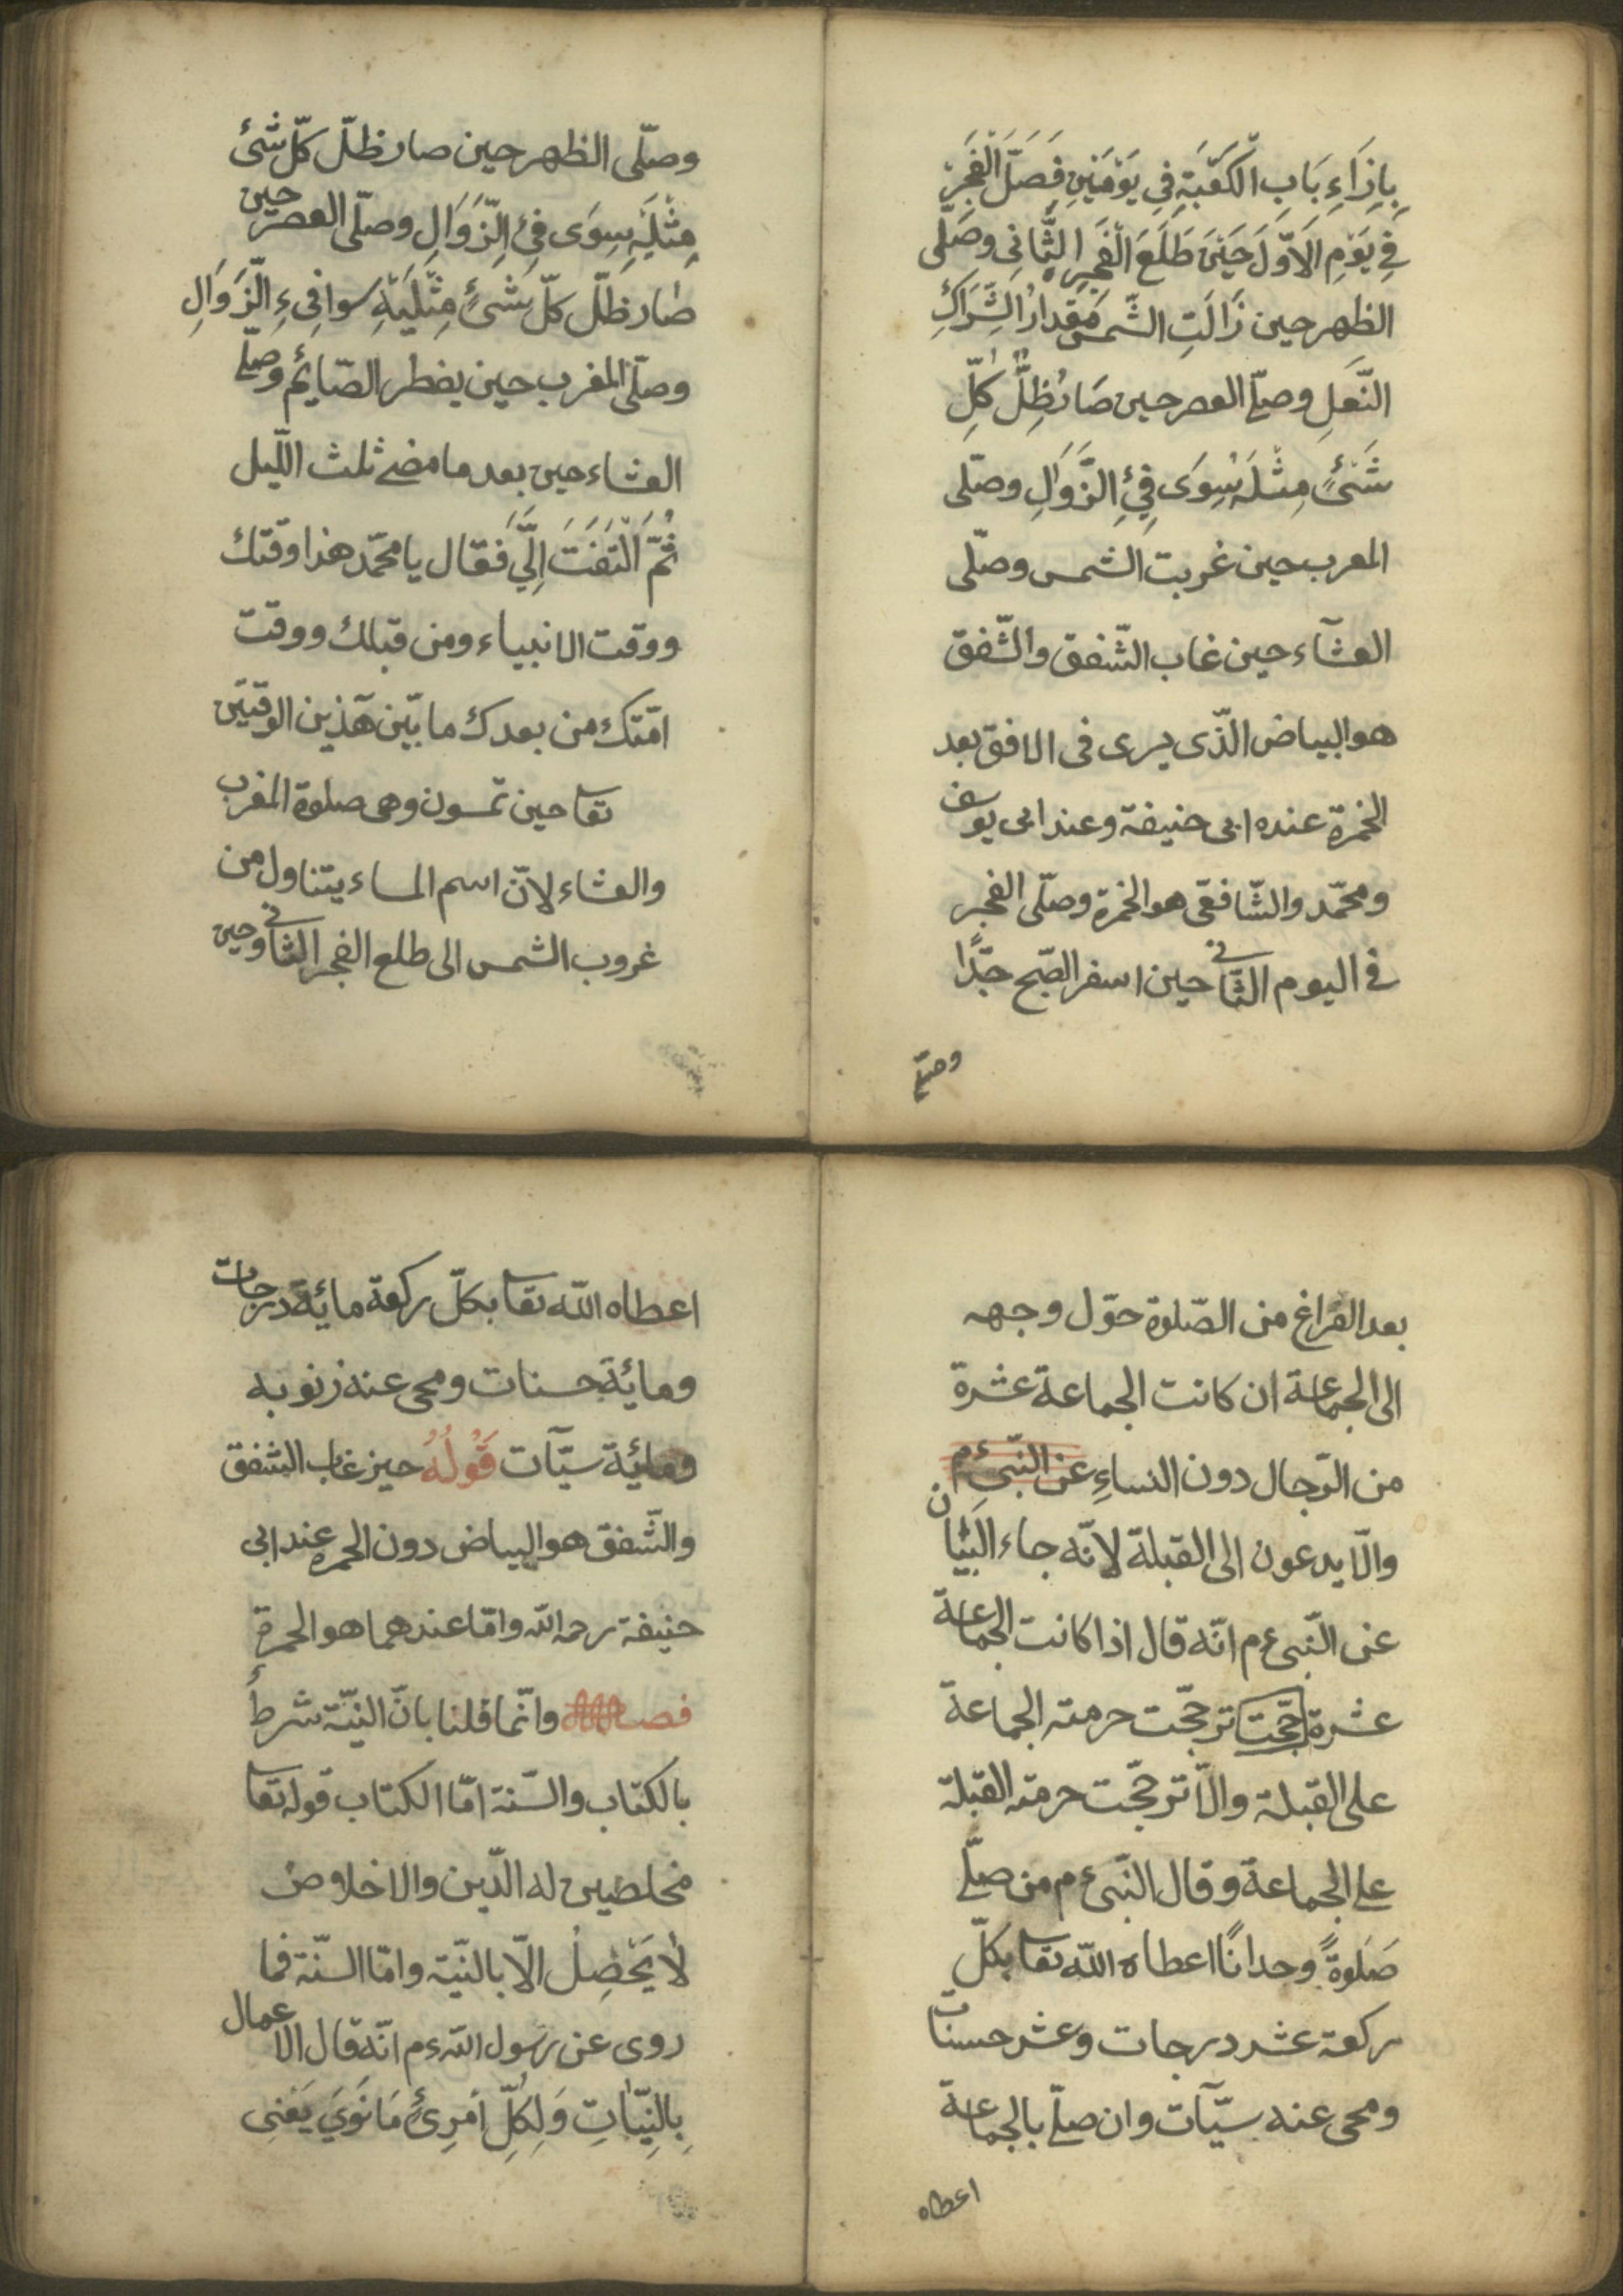 بِاِزَاءِ بَابِ الْكَعْبَةِ فِي يَوْمَيْنِ فَصَلَّ الْفَجَرْ
فِي يَوْمِ الَاَوَّلَ حَيْنَ طَلَعَ الْفَجِرِ الثَّانِى وصَلّٰى
الظهر حين زَالَتِ الشّمس مَقِدارُ الشِّرَاكِ
النَّعلِ وصلّے العصر حين صَارَ ظِلُّ كُلِّ
شَئٍ مِثْلَهُ سِوَى فِئِ الزَّوَالِ وصلّى
المعرب حين غربت الشمس وصلّى
العشآء حين غاب الشّفق والشّفق
هو البياض الذّى يرى فى الافق بعد
الخمرة عنده ابى حنيفة وعند ابى يوسف
ومحمّد والشّافعّى هو الخمرة وصلّى الفجر
فى اليوم الثّانى حين اسفر الصّبح جّدًا
وصلّے
وصلّى الظهر حين صار ظلّ كلّ شئ
مِثْلَيْهِ سِوَى فِئِ الزَّوَالِ وصلّى العصر حين
صار ظلّ كلّ شَئٍ مِثْلَيْهِ سوا فِىءِ الّزَوَالِ
وصلّى المغرب حين يفطر الصّائم وصلّے
العشاء حين بعد ما مضے ثلث اللّيل
ثُمَّ الْتَفَتَ اِلَّيَ فَقَال يا محمّد هذا وقتك
ووقت الانبياء ومن قبلك ووقت
امّتك من بعدك ما بيّن هٓذين الوقتيَن
تعا حين تمسون وهى صلوة المغرب
والعشاء لانّ اسم المساء يتناول من
غروب الشمس الى طلع الفجر الثانى وحين
بعد الفراغ من الصّلوة حوّل وجهه
الى الجماعة ان كانت الجماعة عشرة
من الرّجال دون النساءِ عن النّبىء م
والّا يدعون الى القبلة لانّه جاء البَيْان
عن النّبىء م انّه قال اذا كانت الجماعة
عشرة جحّت ترجحّت حرمته الجماعة
على القبلة والّا ترجحّت حرمته القبلة
على الجماعة وقال النّبىء م من صلّے
صَلوةً وحدانًا اعطاه اللّه تعا بكلّ
ركعة عشر درجات وعشر حسنات
ومحى عنه سيّآت وان صلّے بالجماعة
اعطاه
اعطاه اللّه تعا بكلّ ركعة مائة درجات
ومائة حسنات ومحى عنه زنوبه
ومائة سيّآت قَوْلُهُ حين غاب الشفق
والشّفق هو البياض دون الحمره عند ابى
حنيفة رحمه اللّه وامّا عندهما هو الحمرة
فصـ وانّما قلنا بانّ النيّة شرطٌ
بالكتاب والسّنة امّا الكتاب قوله تعا
مخلصين له الدّين والاخلاوص
لا يَحْصِلُ الّا بالنيّة وامّا السنّة فما
روى عن رسول اللّه ء م انّه قال الاعمال
بِالِنِيّاتِ وَلِكُلِّ اْمَرِئٍ مَا نَوَيَ يَعْنِى